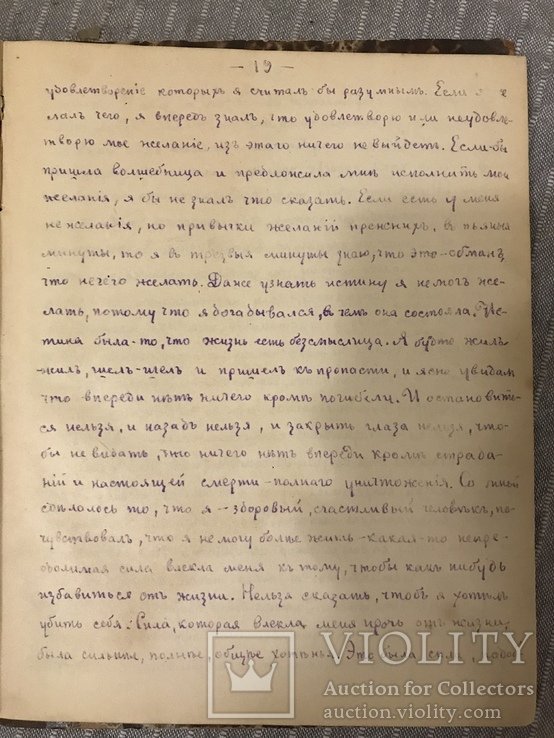 — 19 —
удовлетворенiе которыхъ я считалъ бы разумнымъ. Если я же
лалъ чего, я впередъ зналъ, что удовлетворю или неудовле-
творю мое желанiе, изъ этаго ничего не выйдетъ. Если-бы
пришла волшебница и предложила мнѣ исполнить мои
желанiя, я бы не зналъ что сказать. Если есть у меня
не желанiя, но привычки желанiй прежнихъ, въ пьяныя
минуты, то я въ трезвыя минуты знаю, что это-обманъ,
что нечего желать. Даже узнать истину я немогъ же-
лать, потому что я догадывался, въ чемъ она состояла. Ис-
тина была-то, что жизнь есть безсмыслица. Я будто жилъ-
жилъ, шелъ-шелъ и пришелъ къ пропасти, и ясно увидалъ
что впереди нѣтъ ничего кромѣ погибели. И остановить-
ся нельзя, и назадъ нельзя, и закрыть глаза нельзя, что-
бы не видать, что ничего нѣтъ впереди кромѣ страда-
нiй и настоящей смерти-полнаго уничтоженiя. Со мной
сдѣлалось то, что я - здоровый, счастливый человѣкъ, по-
чувствовалъ, что я не могу болѣе жить-какая-то непре-
одолимая сила влекла меня къ тому, чтобы какъ нибудь
избавиться отъ жизни. Нельзя сказать, чтобъ я хотѣлъ
убить себя. Сила, которая влекла меня прочь отъ жизни,
была сильнѣе, полнѣе, общѣе хотѣнья. Это была сила,
VIOLITY
Auction for Collectors
auction.violity.com